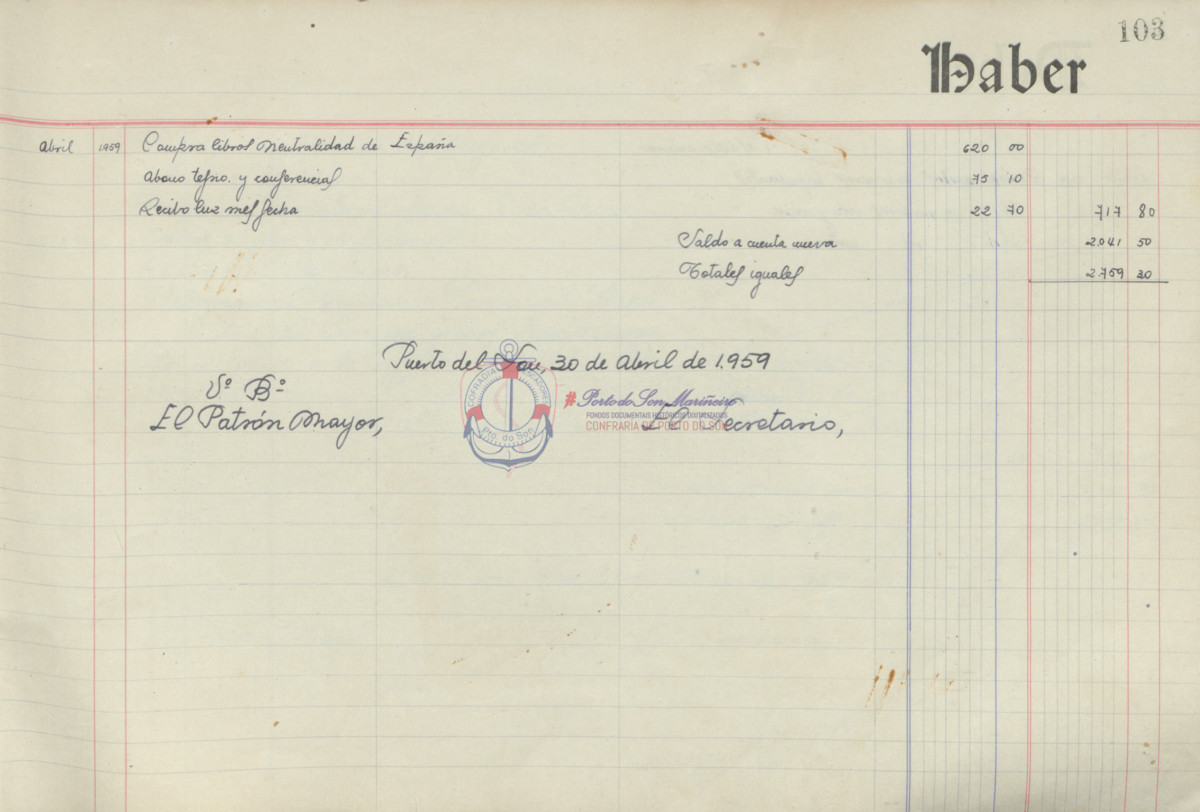 103
Haber
Abril 1959 Compra libros Neutralidad de España 620 00
Abono tefno. y conferencias 75 10
Recibo luz mes fecha 22 70 717 80
Saldo a cuenta nueva 2.041 50
Totales iguales 2.759 30
Puerto del Son, 30 de Abril de 1.959
Vº Bº
El Patrón Mayor,
El Secretario,
COFRADIA PESCADORES
Pto. do Son
#Porto do Son Mariñeiro
FONDOS DOCUMENTAIS HISTÓRICOS DIXITALIZADOS
CONFRARÍA DE PORTO DO SON